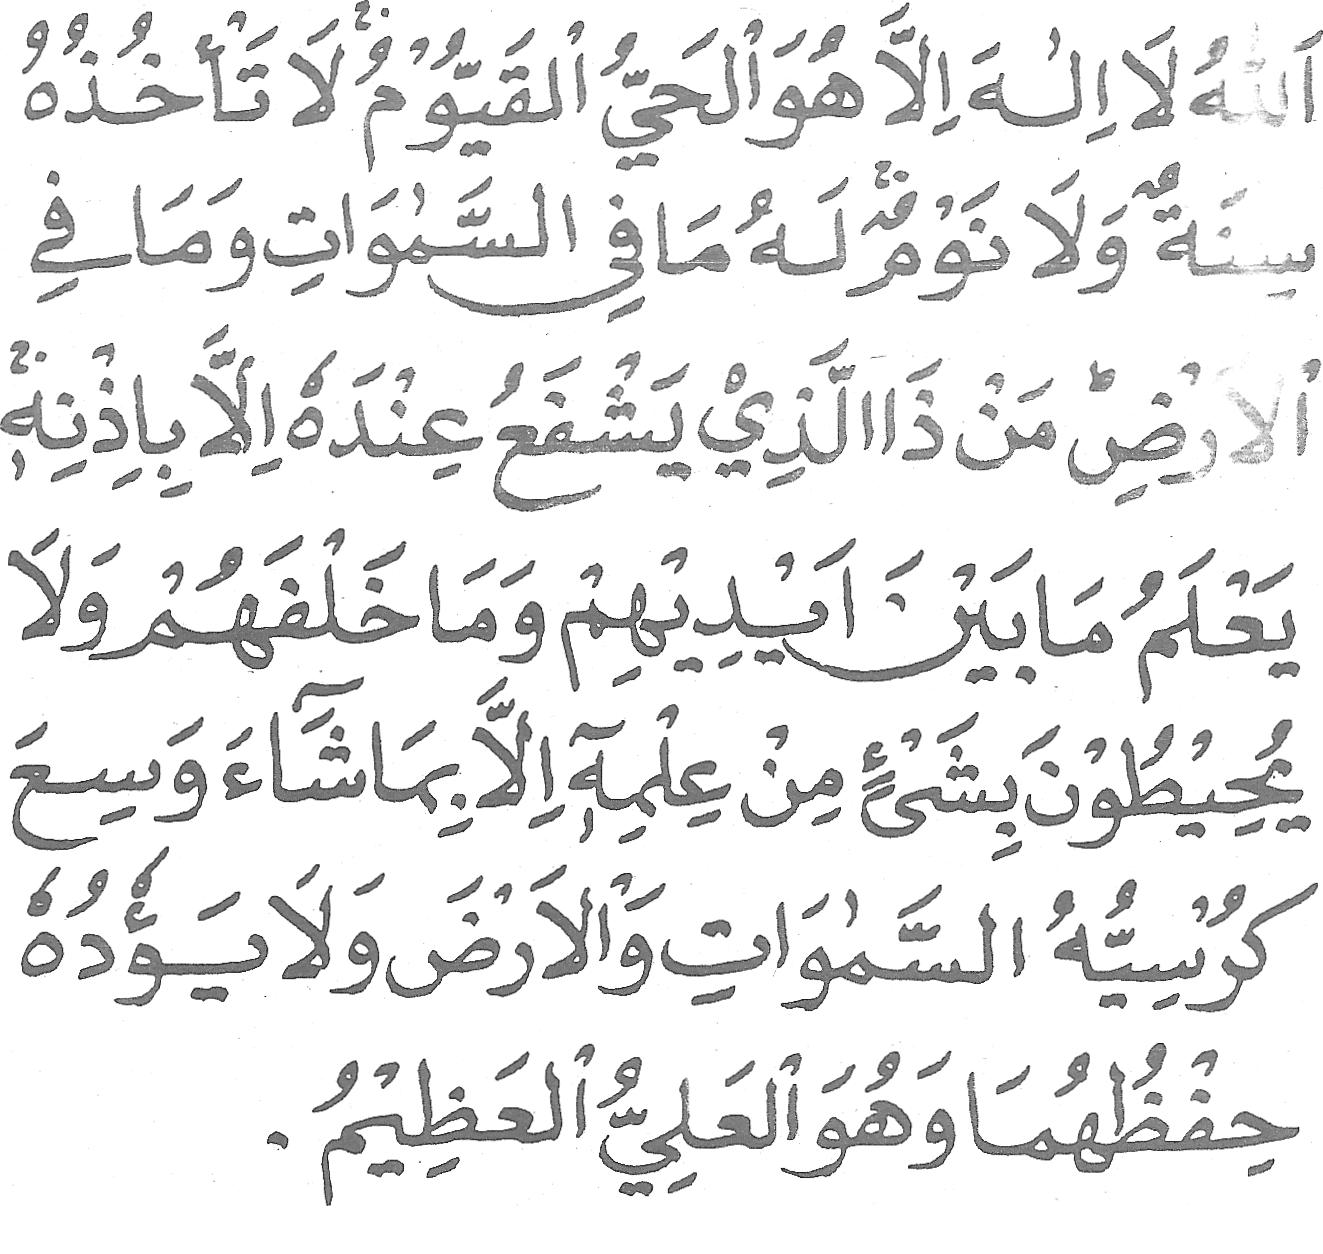 اَللّٰهُ لَا اِلٰهَ اِلَّا هُوَ اْلحَيُّ اْلقَيُّوْمُ ۚ لَا تَأْخُذُهٗ
سِنَةٌ وَلَا نَوْمٌ ۚ لَهُ مَا فِى السَّمٰوَاتِ وَمَا فِي
اْلاَرْضِ ؕ مَنْ ذَا الَّذِيْ يَشْفَعُ عِنْدَهٗ اِلَّا بِاِذْنِهٖ ۚ
يَعْلَمُ مَا بَيْنَ اَيْدِيْهِمْ وَمَا خَلْفَهُمْ وَلَا
يُحِيْطُوْنَ بِشَىْءٍ مِنْ عِلْمِهٖٓ اِلَّا بِمَا شَآءَ وَسِعَ
كُرْسِيُّهُ السَّمٰوَاتِ وَاْلاَرْضَ وَلَا يَؤُدُهٗ
حِفْظُهُمَا وَهُوَ اْلعَلِيُّ اْلعَظِيْمُ .